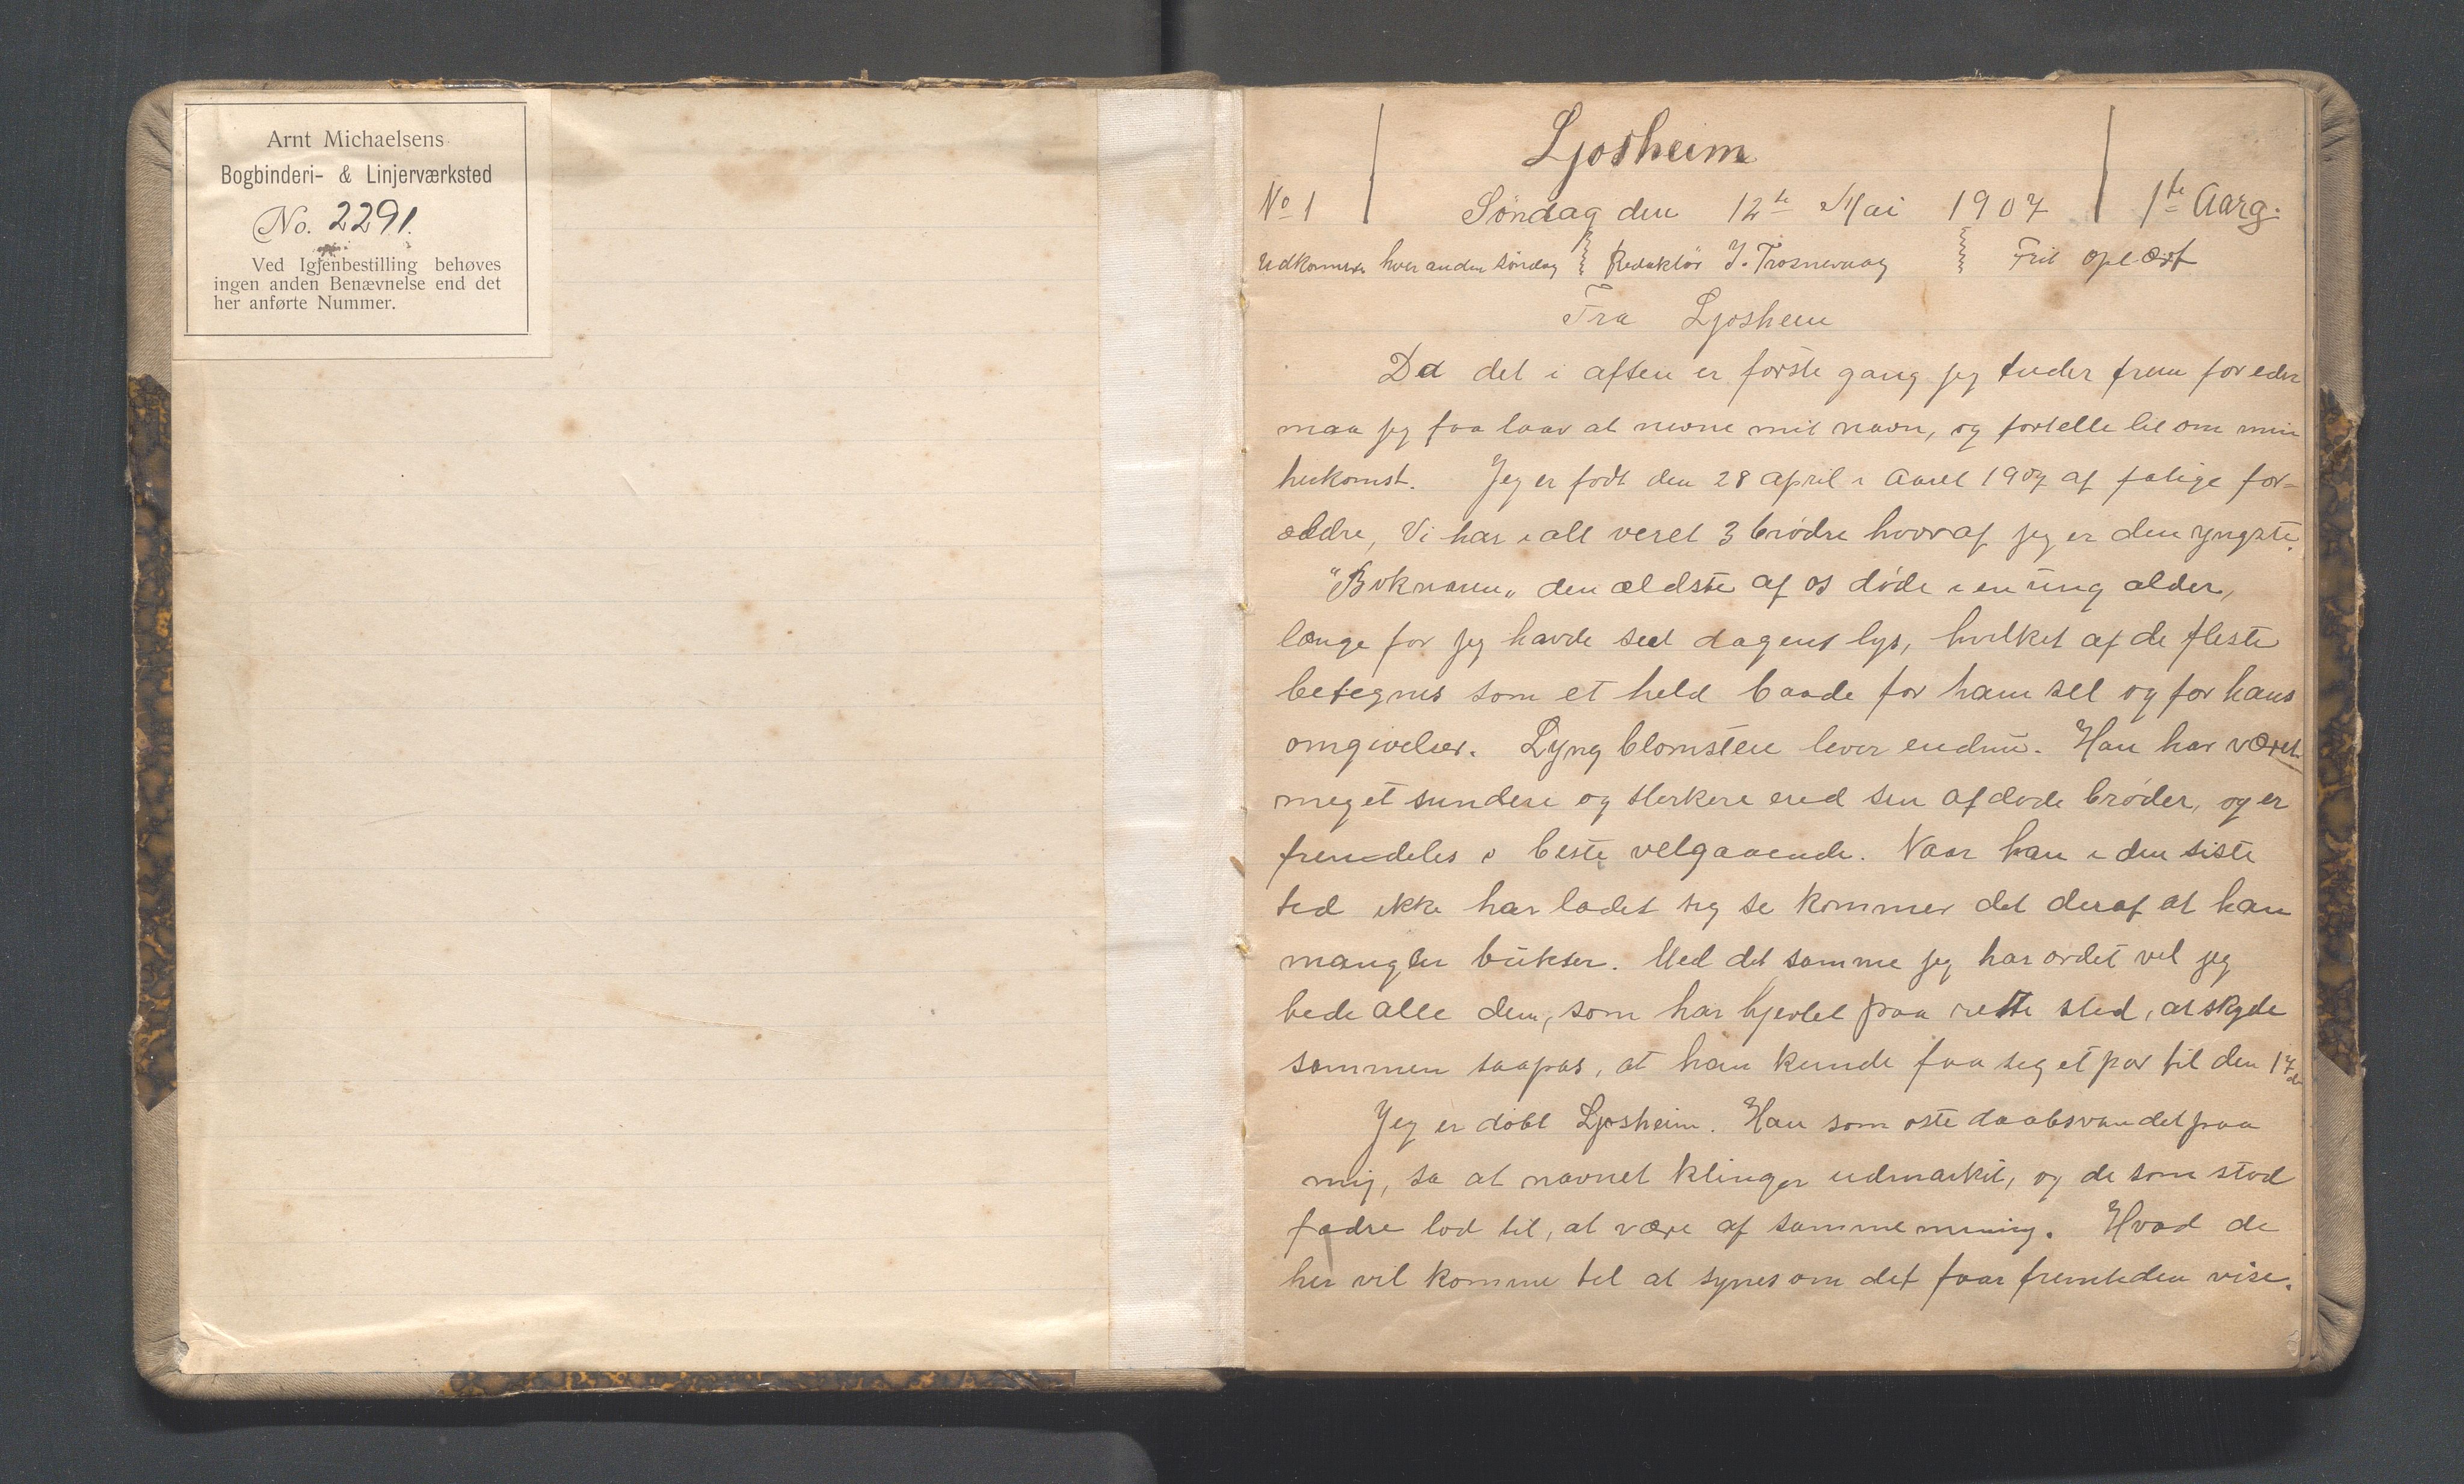 Arnt Michaelsens
Bogbinderi- & Linjerværksted
No. 2291.
Ved Igjenbestilling behøves
ingen anden Benævnelse end det
her anførte Nummer.
Ljosheim
No 1 Søndag den 12te Mai 1907 1te Aarg.
Udkommer hver anden søndag Redaktør J. Trosnevaag Frit oplæst
Fra Ljosheim
Da det i aften er første gang jeg træder frem for eder
maa jeg faa laav at nevne mit navn, og fortelle lit om min
herkomst. Jeg er født den 28 april i aaret 1907 af fatige for-
ældre, Vi har i alt veret 3 brødre hvoraf jeg er den yngste.
"Boknaren" den ældste af os døde i en ung alder,
længe før jeg havde seet dagens lys, hvilket af de fleste
betegnes som et held baade for ham sel og for hans
omgivelser. Lyngblomsten lever endnu. Han har været
meget sundere og sterkere end sin afdøde brøder, og er
fremdeles i beste velgaaende. Naar han i den siste
tid ikke har ladet sig se kommer det deraf at han
mangler bukser. Med det samme jeg har ordet vil jeg
bede alle dem, som har hjertet paa rette sted, at skyde
sammen saapas, at han kunde faa sig et par til den 17de
Jeg er døbt Ljosheim. Han som øste daabsvandet paa
mig, sa at navnet klinger udmærket, og de som stod
fadre lod til, at være af samme mening. Hvad de
her vil komme til at synes om det faar fremtiden vise.